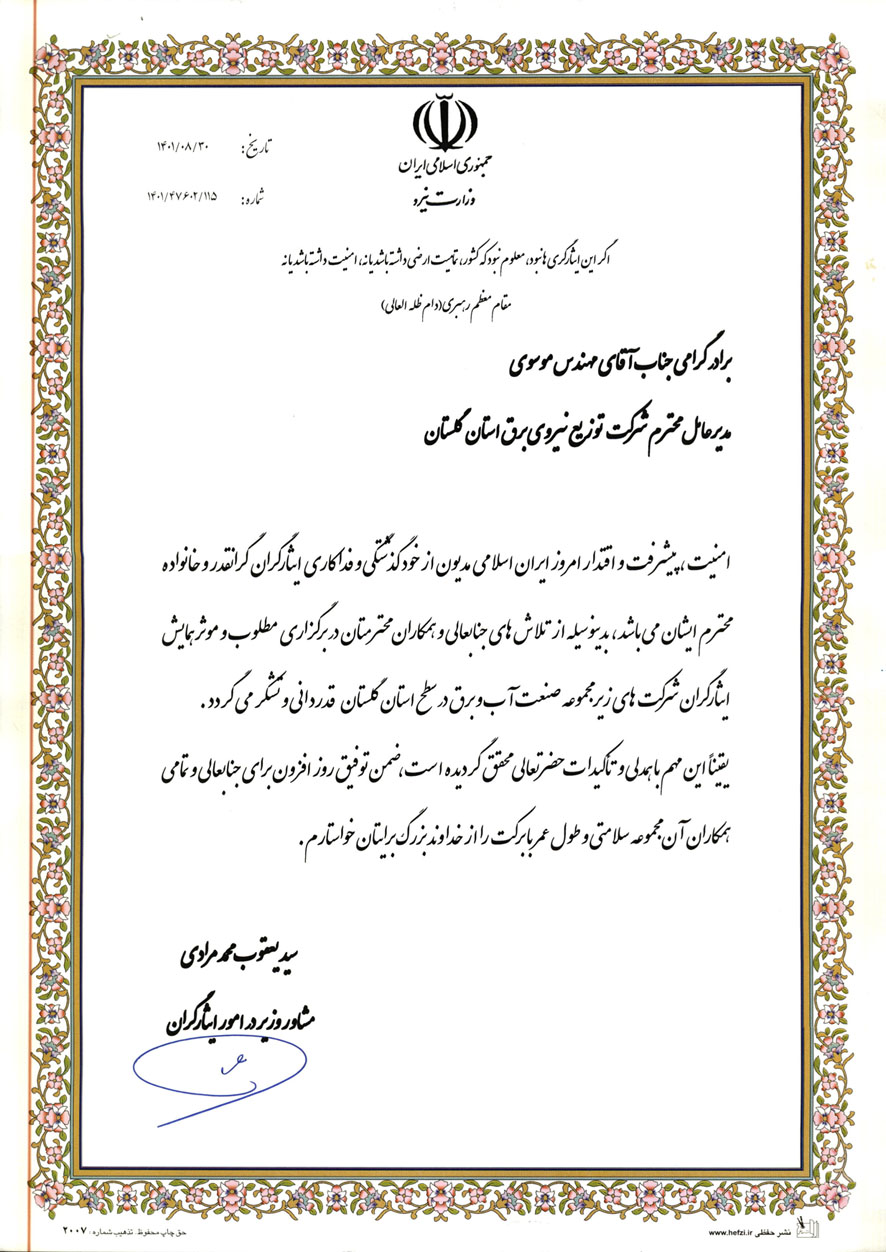 جمهوری اسلامی ایران
وزارت نیرو
تاریخ: ۱۴۰۱/۰۸/۳۰
شماره: ۱۴۰۱/۴۷۶۰۲/۱۱۵
اگر این ایثارگری ها نبود، معلوم نبود که کشور، تمامیت ارضی داشته باشد یا نه، امنیت داشته باشد یا نه
مقام معظم رهبری(دام ظله العالی)
برادر گرامی جناب آقای مهندس موسوی
مدیرعامل محترم شرکت توزیع نیروی برق استان گلستان
امنیت ، پیشرفت و اقتدار امروز ایران اسلامی مدیون از خودگذشتگی و فداکاری ایثارگران گرانقدر و خانواده
محترم ایشان می باشد ، بدینوسیله از تلاش های جنابعالی و همکاران محترمتان در برگزاری مطلوب و موثر همایش
ایثارگران شرکت های زیرمجموعه صنعت آب و برق در سطح استان گلستان قدردانی و تشکر می گردد .
یقیناً این مهم با همدلی و تأکیدات حضرتعالی محقق گردیده است، ضمن توفیق روز افزون برای جنابعالی و تمامی
همکاران آن مجموعه سلامتی و طول عمر با برکت را از خداوند بزرگ برایتان خواستارم .
سید یعقوب محمد مرادی
مشاور وزیر در امور ایثارگران
نشر حفظی www.hefzi.ir
حق چاپ محفوظ. تذهیب شماره: ۲۰۰۷